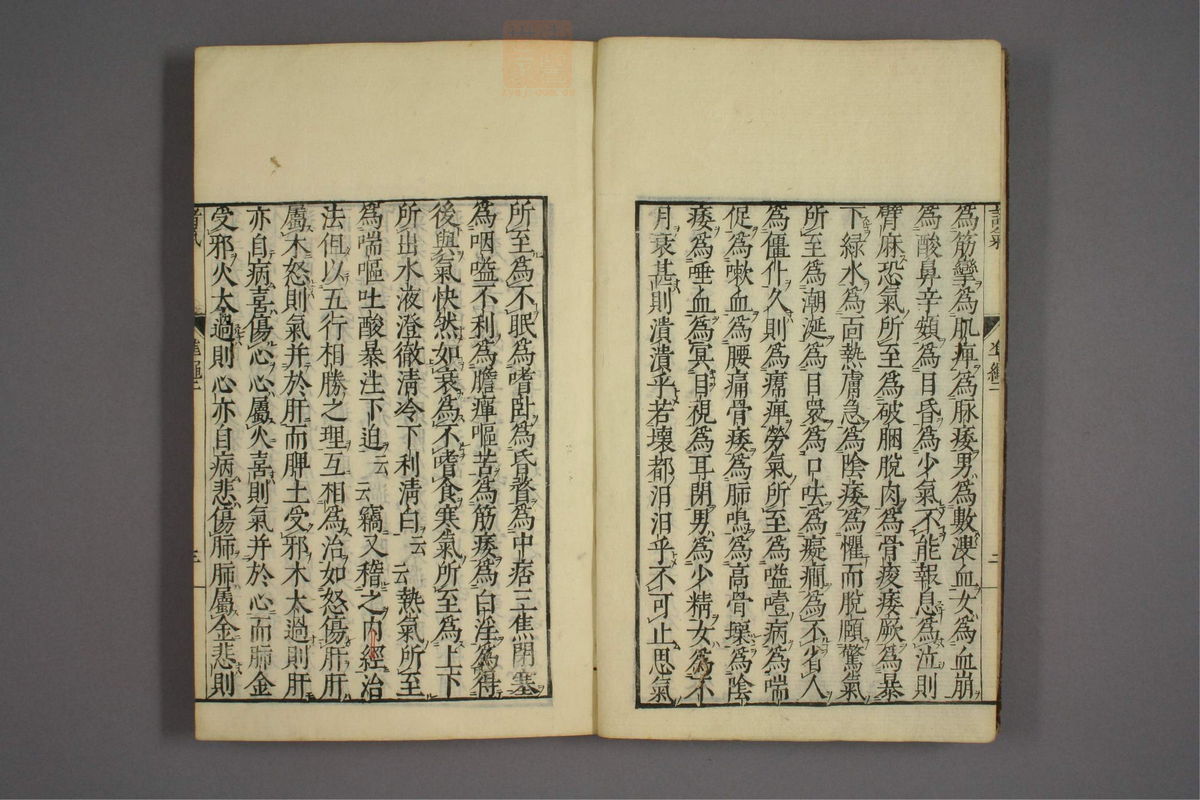 為筋攣為肌痺為脉痿男為數溲血女為血崩
為酸鼻辛頞為目昏為少氣不能報息為泣則
臂麻恐氣所至為破䐃脫肉為骨痠痿厥為暴
下綠水為面熱膚急為陰痿為懼而脫頤驚氣
所至為潮涎為目睘為口呿為癡癇為不省人
為僵仆久則為㿏痺勞氣所至為嗌噎病為喘
促為嗽血為腰痛骨痿為肺鳴為高骨壞為陰
痿為唾血為冥目視為耳閉男為少精女為不
月衰甚則潰潰乎若壞都汨汨乎不可止思氣
所至為不眠為嗜卧為昏瞀為中痞三焦閉塞
為咽嗌不利為膽癉嘔苦為筋痿為白淫為得
後與氣快然如衰為不嗜食寒氣所至為上下
所出水液澄徹清冷下利清白云云熱氣所至
為喘嘔吐酸暴注下迫云云竊又稽之内經治
法但以五行相勝之理互相為治如怒傷肝肝
屬木怒則氣并於肝而脾土受邪木太過則肝
亦自病喜傷心心屬火喜則氣并於心而肺金
受邪火太過則心亦自病悲傷肺肺屬金悲則